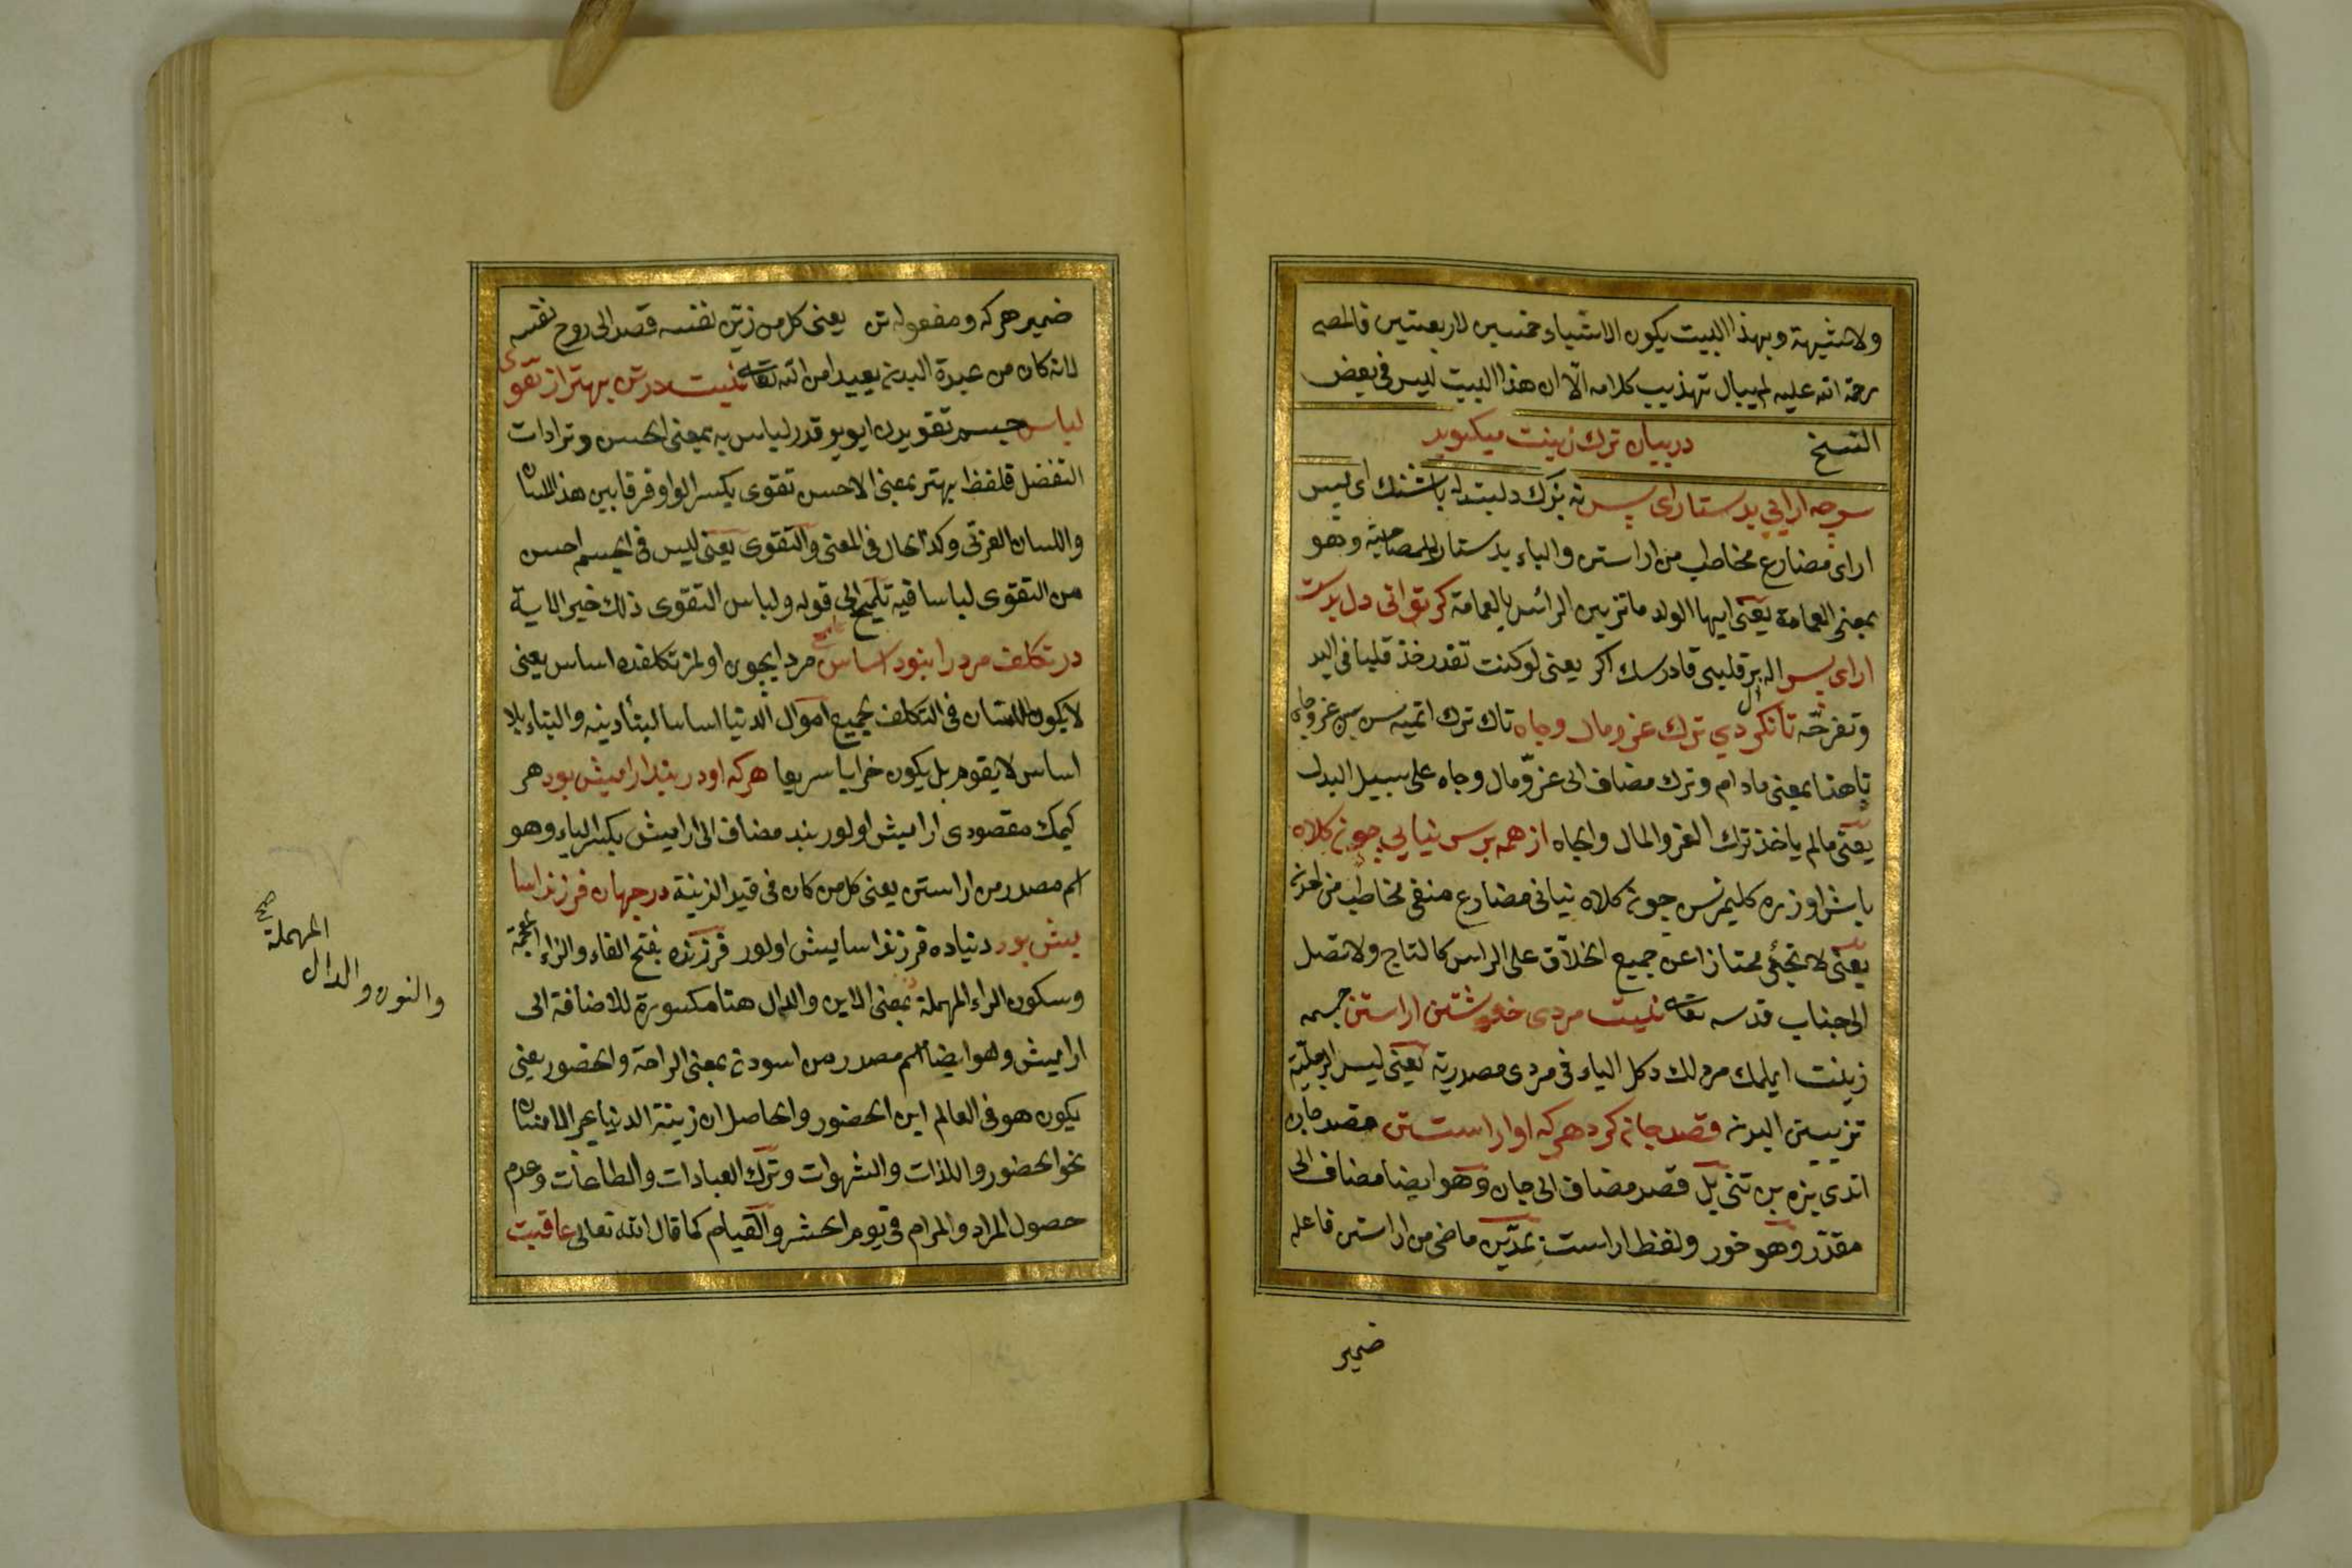 ولا شبهة وبهذا البيت يكون الاشياء خمسين لاربعتين فالمصه
رحمة الله عليه لم يبال تهذيب كلامه الّا ان هذا البيت ليس فى بعض
النسخ در بيان ترك زينت ميكويد
سر چه ارايى بدستار اى پسر نه بزك دلبند له باشنك اى
اراى مضارع مخاطب من اراستن والباء بدستار للمصاحبة وهو
بمعنى العمامة يعنى ايها الولد ما تزيين الرأس بالعمامة كر توانى دل بدست
اراى پسر اله بر قلبى قادرسك اكر يعنى لو كنت تقدر خذ قلبا فى اليد
وتفرحه تا نكردي ترك عز ومال وجاه تاك ترك اتميه سن
تا هنا بمعنى مادام وترك مضاف الى عزّ ومال وجاه على سبيل البدل
يعنى مالم ياخذ ترك العز والمال والجاه از همه بر سر نيايي چون كلاه
باش اوزره كليمزسن چون كلاه نيائى مضارع منفى مخاطب من
يعنى لا تجئ ممتازا عن جميع الخلاّق على الراس كالتاج ولا تصل
الى جناب قدسه تعالى نيست مردى خويشتن اراستن جسمه
زينت ايلمك مردلك دكل الياء فى مردى مصدرية يعنى ليس الرجلية
تزيين البدن قصد جان كرد هركه او اراست تن قصد جان
اتدى بزه ين تنى بل قصد مضاف الى جان وهو ايضا مضاف الى
مقدّر وهو خود ولفظ اراست ماضى من اراستن فاعله
ضمير
ضمير هركه ومفعوله تن يعنى كل من زيّن نفسه قصد الى روح نفسه
لانه كان من عبدة البدن بعيدا من الله تعالى نيست در تن بهتر از تقوى
لباس جسم تقويدن ايو يوقدر لباس به بمعنى الحسن وتر ادات
التفضل فلفظ بهتر بمعنى الاحسن تقوى بكسر الواو فرقا بين هذا اللسان
واللسان العربى وكذا الحال فى المعنى والتقوى يعنى ليس فى الجسم احسن
من التقوى لباسا فيه تلميح الى قوله ولباس التقوى ذلك خير الاية
در تكلف مرد را نبود اساس مرد ايچون اولمز تكلفده اساس يعنى
لا يكون للانسان فى التكلف بجميع اموال الدنيا اساسا لبنأ دينه والبناء بلا
اساس لا يقوم بل يكون خرابا سريعا هركه او در بند ارايش بود هر
كيمك مقصودى ارايش اولور بند مضاف الى ارايش بكسر الياء وهو
اسم مصدر من اراستن يعنى كل من كان فى قيد الزينة در جهان فرزند اسا
يش بود دنياده فرزند اسايش اولور فرزند بفتح الفاء والزاء المعجمة
وسكون الراء المهملة بمعنى الابن والدال هنا مكسورة للاضافة الى
ارايش وهو ايضا اسم مصدر من اسودن بمعنى الراحة والحضور يعنى
يكون هو فى العالم ابن الحضور والحاصل ان زينة الدنيا يجر الانسان
نحو الحضور واللذات والشهوات وترك العبادات والطاعات وعدم
حصول المراد والمرام فى يوم الحشر والقيام كما قال الله تعالى عاقبت
والنون والدال
المهملة
صح